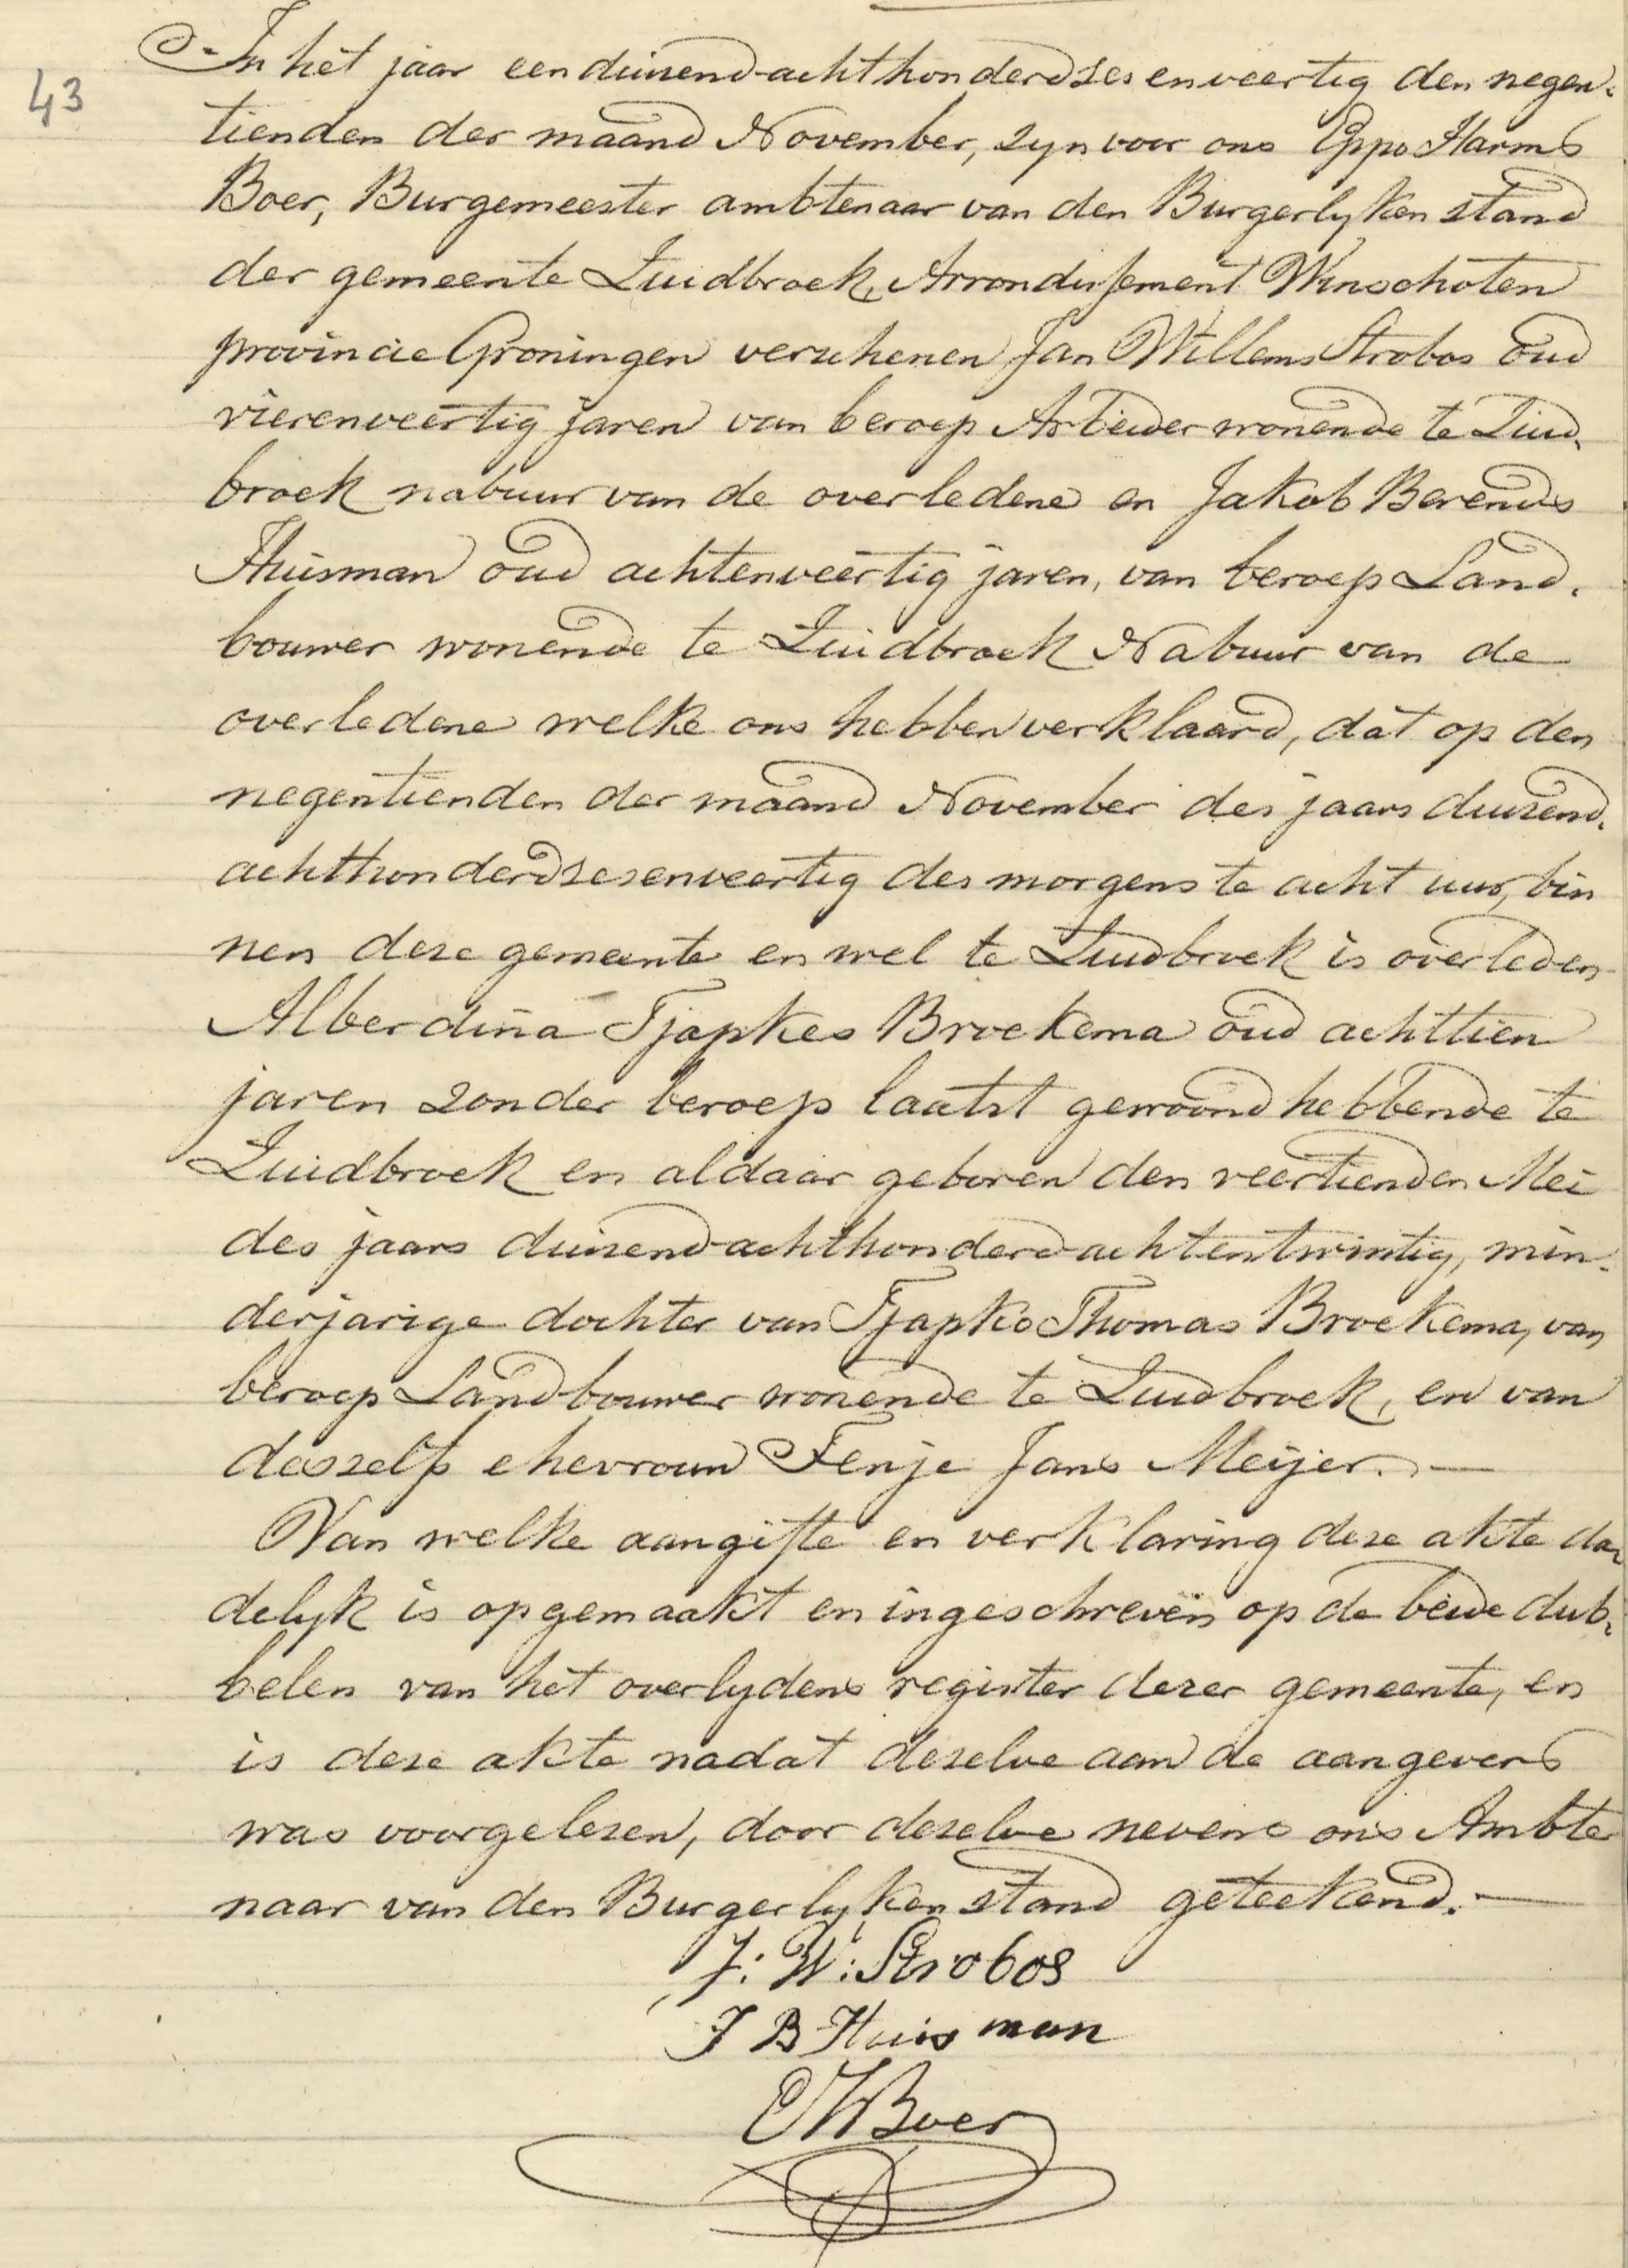 43
In het jaar eenduizend achthonderdzesenveertig den negen-
tienden der maand November, zyn voor ons Eppo Harms
Boer, Burgemeester ambtenaar van den Burgerlyken stand
der gemeente Zuidbroek, Arrondissement Winschoten
provincie Groningen verschenen Jan Willems Strobos oud
vierenveertig jaren van beroep Arbeider wonende te Zuid-
broek nabuur van de overledene en Jakob Berends
Huisman oud achtenveertig jaren, van beroep Land-
bouwer wonende te Zuidbroek Nabuur van de
overledene welke ons hebben verklaard, dat op den
negentienden der maand November des jaars duizend-
achthonderdzesenveertig des morgens te acht uur, bin
nen deze gemeente en wel te Zuidbroek is overleden
Alberdina Tjapkes Broekema oud achttien
jaren zonder beroep laatst gewoond hebbende te
Zuidbroek en aldaar geboren den veertienden Mei
des jaars duizend achthonderd achtentwintig, min-
derjarige dochter van Tjapko Thomas Broekema, van
beroep Landbouwer wonende te Zuidbroek, en van
deszelfs ehevrouw Fenje Jans Meijer. —
Van welke aangifte en verklaring deze akte da
delyk is opgemaakt en ingeschreven op de beide dub-
belen van het overlydens register dezer gemeente, en
is deze akte nadat dezelve aan de aangevers
was voorgelezen, door dezelve nevens ons Ambte
naar van den Burgerlyken stand geteekend. —
J: W: Strobos
J B Huisman
EHBoer